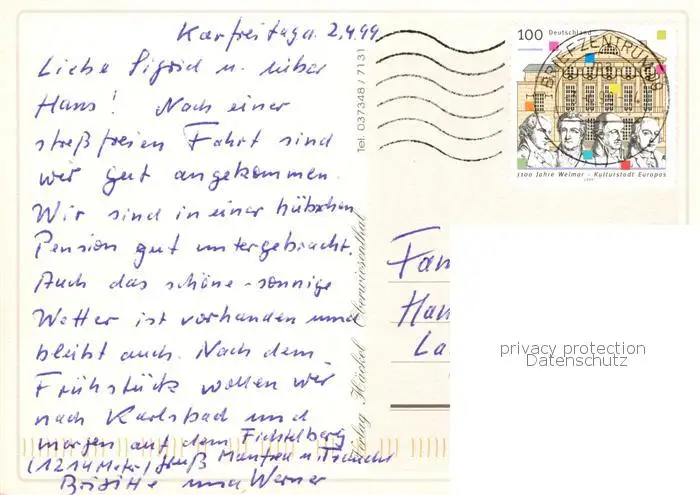 Karfreitag d. 2.4.99
Liebe Sigrid u. lieber
Hans! Nach einer
streßfreien Fahrt sind
wir gut angekommen.
Wir sind in einer hübschen
Pension gut untergebracht.
Auch das schöne-sonnige
Wetter ist vorhanden und
bleibt auch. Nach dem
Frühstück wollen wir
nach Karlsbad und
morgen auf dem Fichtelberg
(1214 Meter) Gruß Manfred u.
Brigitte und Werner
Tel. 037348 / 7131
Verlag Häckel Oberwiesenthal
100 Deutschland
BRIEFZENTRUM
1100 Jahre Weimar - Kulturstadt Europas
1999
Fam
Han
La
privacy protection
Datenschutz